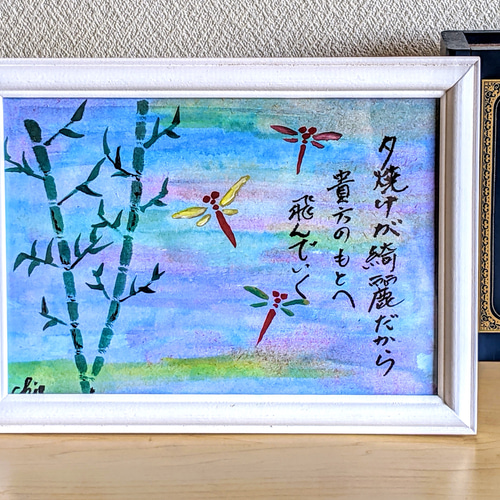 夕焼けが綺麗だから
貴方のもとへ
飛んでいく
chie